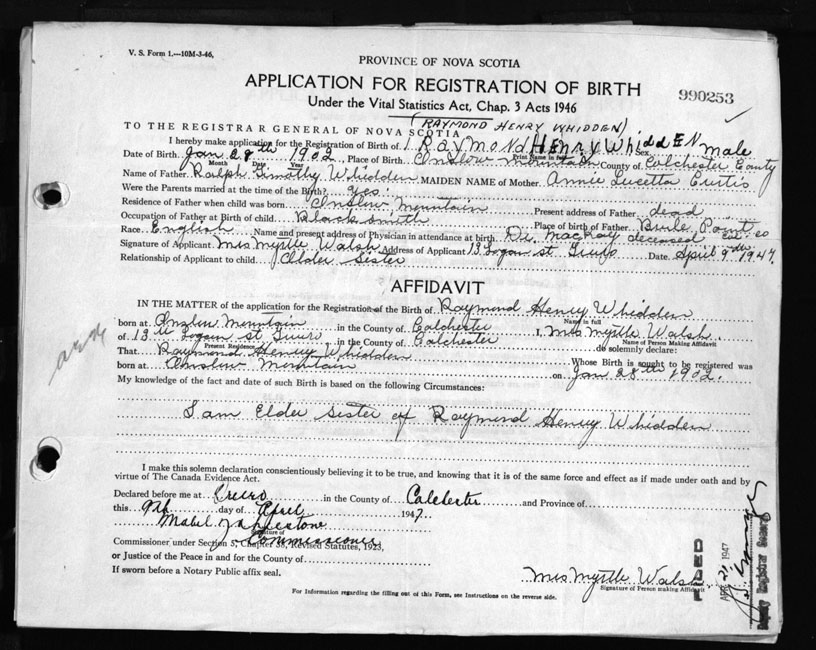 V. S. Form 1.—10M-3-46,
PROVINCE OF NOVA SCOTIA
APPLICATION FOR REGISTRATION OF BIRTH
990253
Under the Vital Statistics Act, Chap. 3 Acts 1946
(RAYMOND HENRY WHIDDEN)
TO THE REGISTRAR GENERAL OF NOVA SCOTIA
I hereby make application for the Registration of Birth of 1. RAYMOND HENRY WHIDDEN Sex male
Print Name in full
Date of Birth Jan 28th 1902, Place of Birth Onslow Mountain County of Colchester County
Month Date Year
Name of Father Ralph Timothy Whidden MAIDEN NAME of Mother Annie Lucetta Curtis
Were the Parents married at the time of the Birth? yes.
Residence of Father when child was born Onslow Mountain Present address of Father dead
Occupation of Father at Birth of child Blacksmith Place of birth of Father Point
Race English Name and present address of Physician in attendance at birth Dr. MacKay deceased
Signature of Applicant Mrs Myrtle Walsh Address of Applicant 13 Logan st. Truro Date April 9th 1947.
Relationship of Applicant to child Elder Sister
AFFIDAVIT
IN THE MATTER of the application for the Registration of the Birth of Raymond Henry Whidden
Name in full
born at Onslow Mountain in the County of Colchester I, Mrs Myrtle Walsh
Name of Person Making Affidavit
of 13 Logan St Truro in the County of Colchester do solemnly declare:
Present Residence
That Raymond Henry Whidden Whose Birth is sought to be registered was
born at Onslow Mountain on Jan 28th 1902.
My knowledge of the fact and date of such Birth is based on the following Circumstances:
I am Elder Sister of Raymond Henry Whidden
I make this solemn declaration conscientiously believing it to be true, and knowing that it is of the same force and effect as if made under oath and by
virtue of The Canada Evidence Act.
Declared before me at Truro in the County of Colchester and Province of
this 9th day of April 1947
Mabel
Signature of
Commissioner
Commissioner under Section 5, Chapter 38, Revised Statutes, 1923,
or Justice of the Peace in and for the County of
If sworn before a Notary Public affix seal.
Mrs Myrtle Walsh
Signature of Person making Affidavit
For Information regarding the filling out of this Form, see Instructions on the reverse side.
FILED
APR 21 1947
Deputy Registrar General